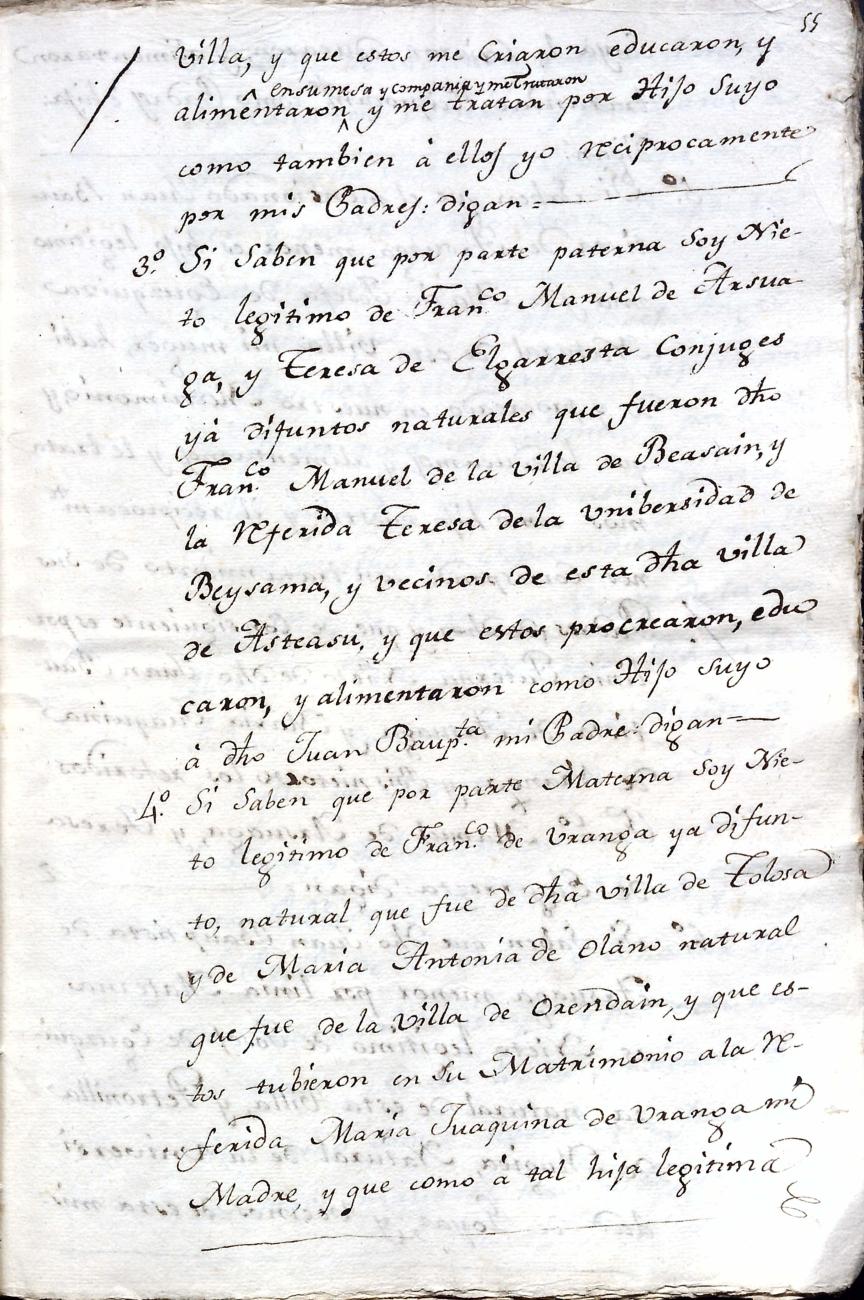 55
villa, y que estos me Criaron educaron, y
ensumesa y compania, y me trataron
alimentaron, y me tratan por Hijo Suyo
como tambien à ellos yo reciprocamente
por mis Padres: digan =
3.º Si Saben que por parte paterna Soy Nie-
to legitimo de Fran.co Manuel de Arsua
ga, y Teresa de Elgarresta Conjuges
yà difuntos naturales que fueron dho
Fran.co Manuel de la villa de Beasain, y
la referida Teresa de la Unibersidad de
Beysama, y vecinos de esta dha villa
de Asteasu, y que estos procrearon, edu
caron, y alimentaron como Hijo Suyo
à dho Juan Baup.ta mi Padre: digan =
4.º Si Saben que por parte Materna Soy Nie-
to legitimo de Fran.co de Vranga ya difun-
to, natural que fue de dha villa de Tolosa
y de Maria Antonia de Olano natural
que fue de la villa de Orendain, y que es-
tos tubieron en Su Matrimonio a la re-
ferida Maria Juaquina de Vranga mi
Madre, y que como à tal hija legitima